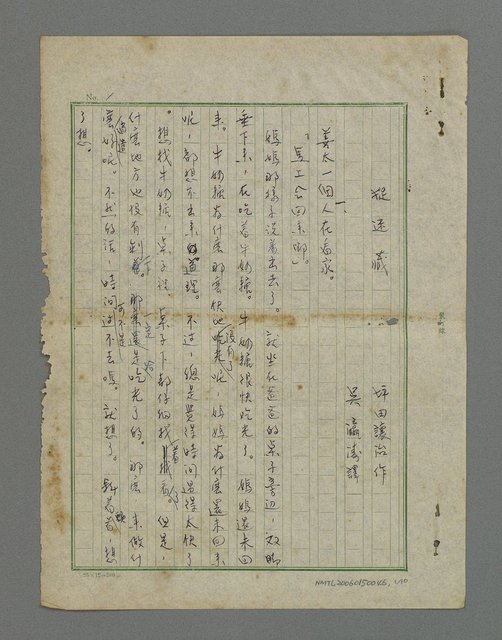 捉迷藏
坪田讓治作
吳瀛濤譯
一、
善太一個人在看家。
「馬上会回來啊」
媽媽那樣子說着出去了。就坐在這邊的桌子旁边，双脚
垂下來，在吃着牛奶糖。牛奶糖很快吃光了。媽媽還未回
來。牛奶糖為什麼那麼快地吃光呢，媽媽為什麼還未回來
呢，都想不出來道理。不过，總是覺得時間過得太快了
。想找牛奶糖，桌子, 桌子下都仔細找看。但是，
什麼地方也沒有剩着。那還是吃光了的。那麼，來做什
麼好呢。不然的話，時間過不去嗎。就想了。斜着首，想
了想。
No. 1
NMTL20060150046, 1/10